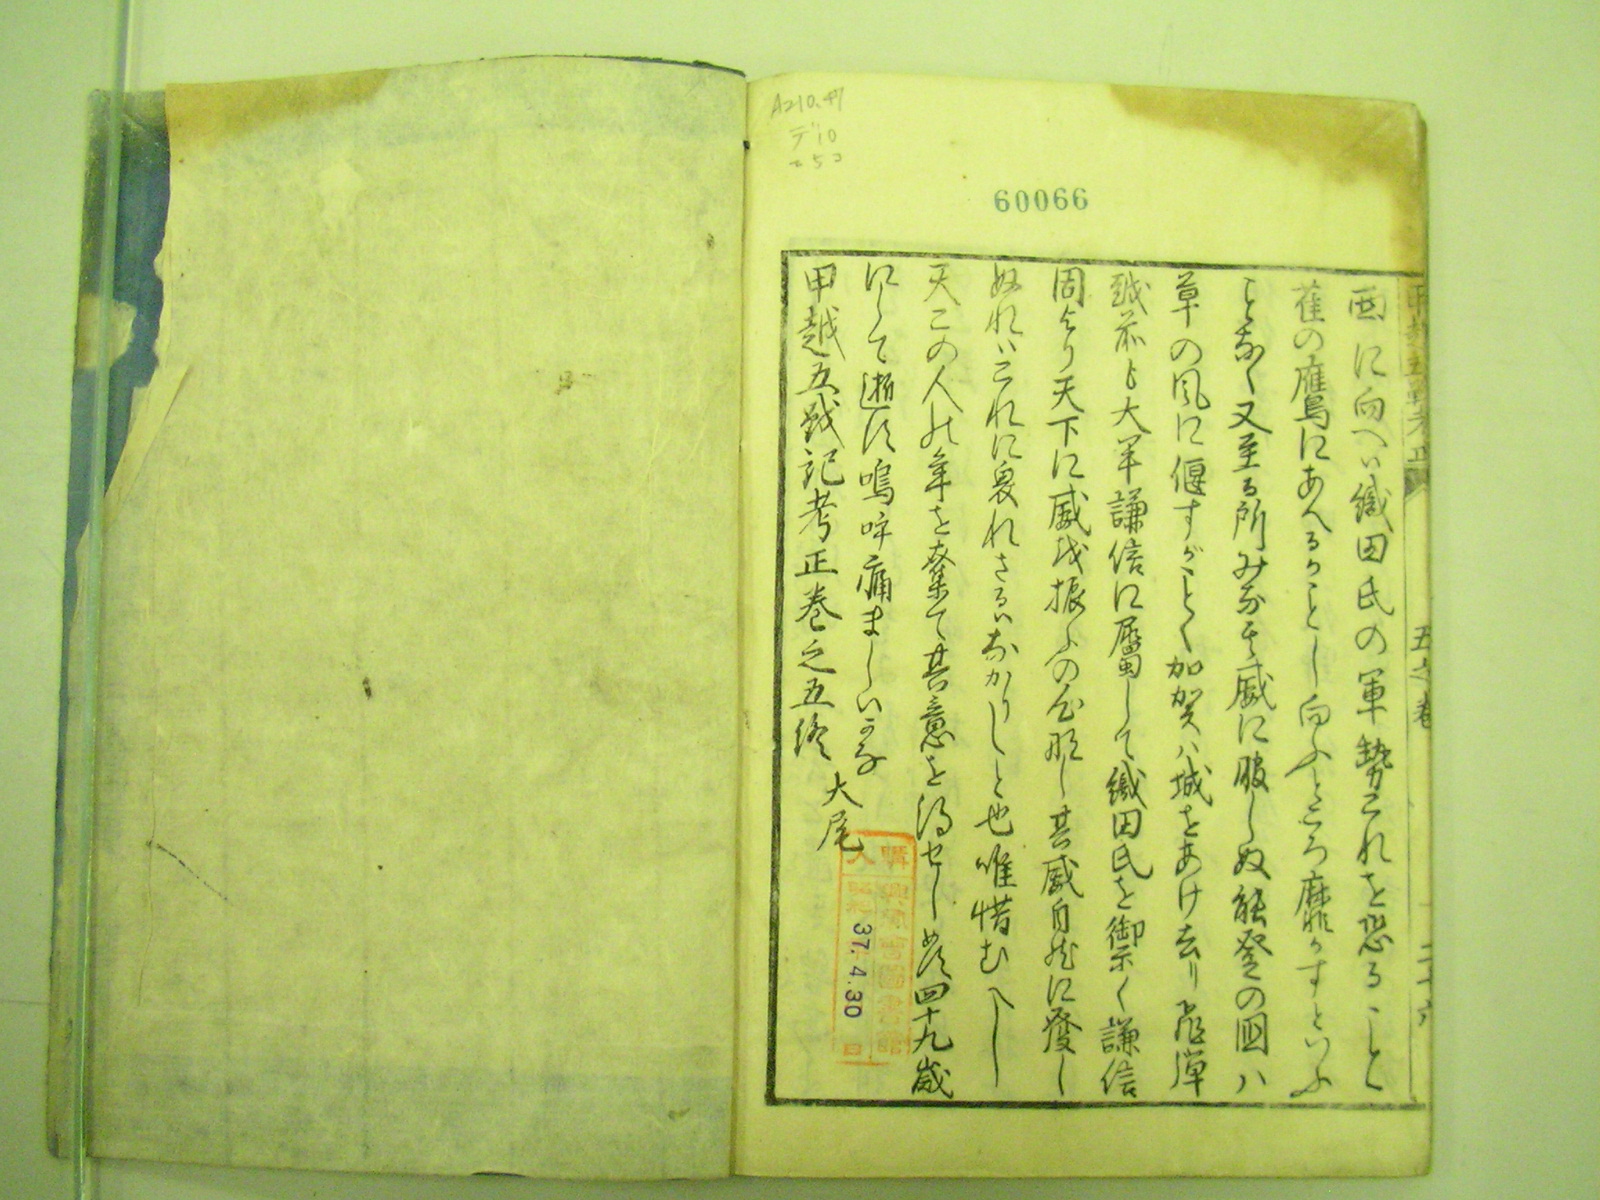 A210.4
デ10
60066
西に向へハ織田氏の軍勢これを恐るゝこと
雀の鷹にあへるかことし向ふところ靡かすといふ
ことなく又至る所みな其威に服しぬ能登の国ハ
草の風に偃すがことく加賀ハ城をあけ去り
越前も大半謙信に属して織田氏を禦く謙信
固より天下に威を振ふの心なし其威自然に発し
ぬれハこれに裏れさるハなかりしと也唯惜むへし
天この人の年を奪て其意を得せしめす四十九歳
にして逝す嗚呼痛ましいかな
甲越五戦記考正巻之五終
大尾
五之巻
購入
37.4.30